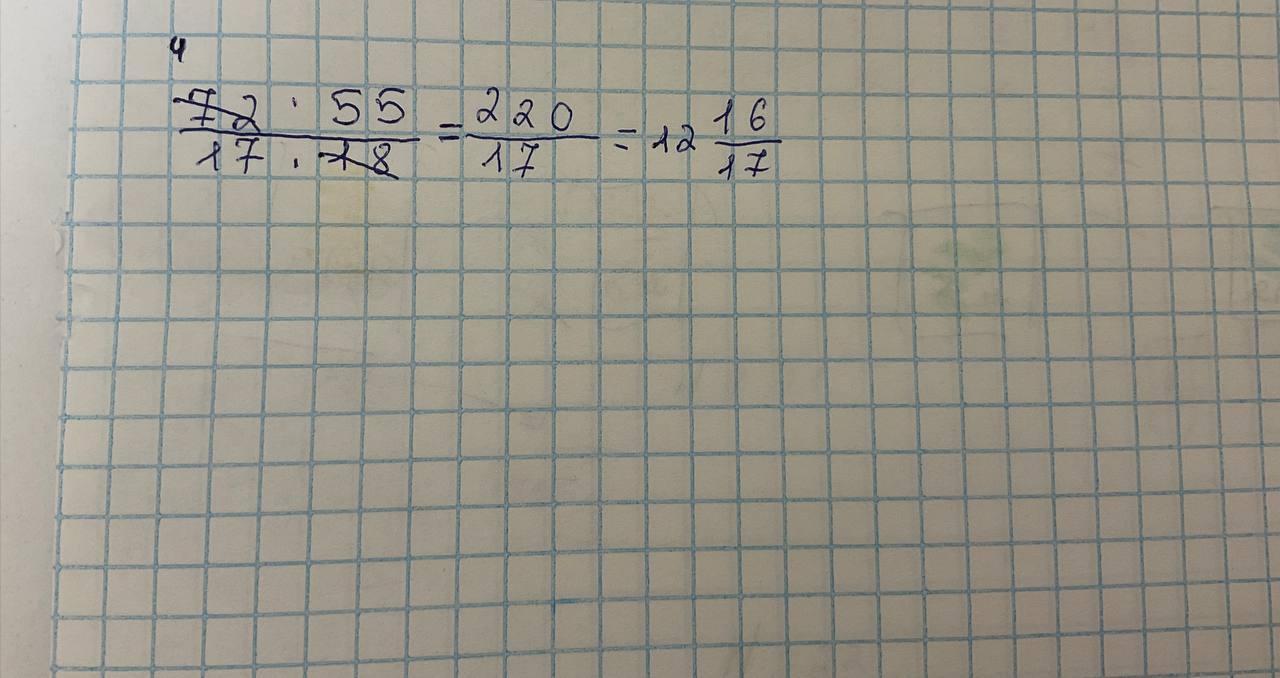 4
72 · 55 / 17 · 18 = 220 / 17 = 12 16/17